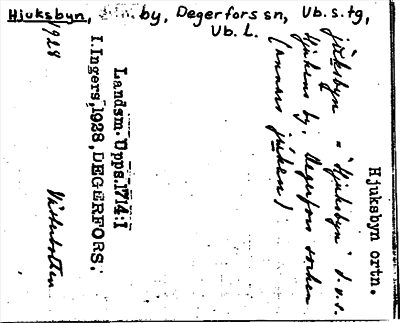 Hjuksbyn, by, Degerfors sn, Vb. s. tg,
Vb. L.
Hjuksbyn ortn.
juksbyn "Hjuksbyn" d.v.s.
Hjukens by. Degerfors socken
(annars juken)
Landsm. Upps. 1714:1
I. Ingers, 1928, DEGERFORS.
Västerbotten
1928